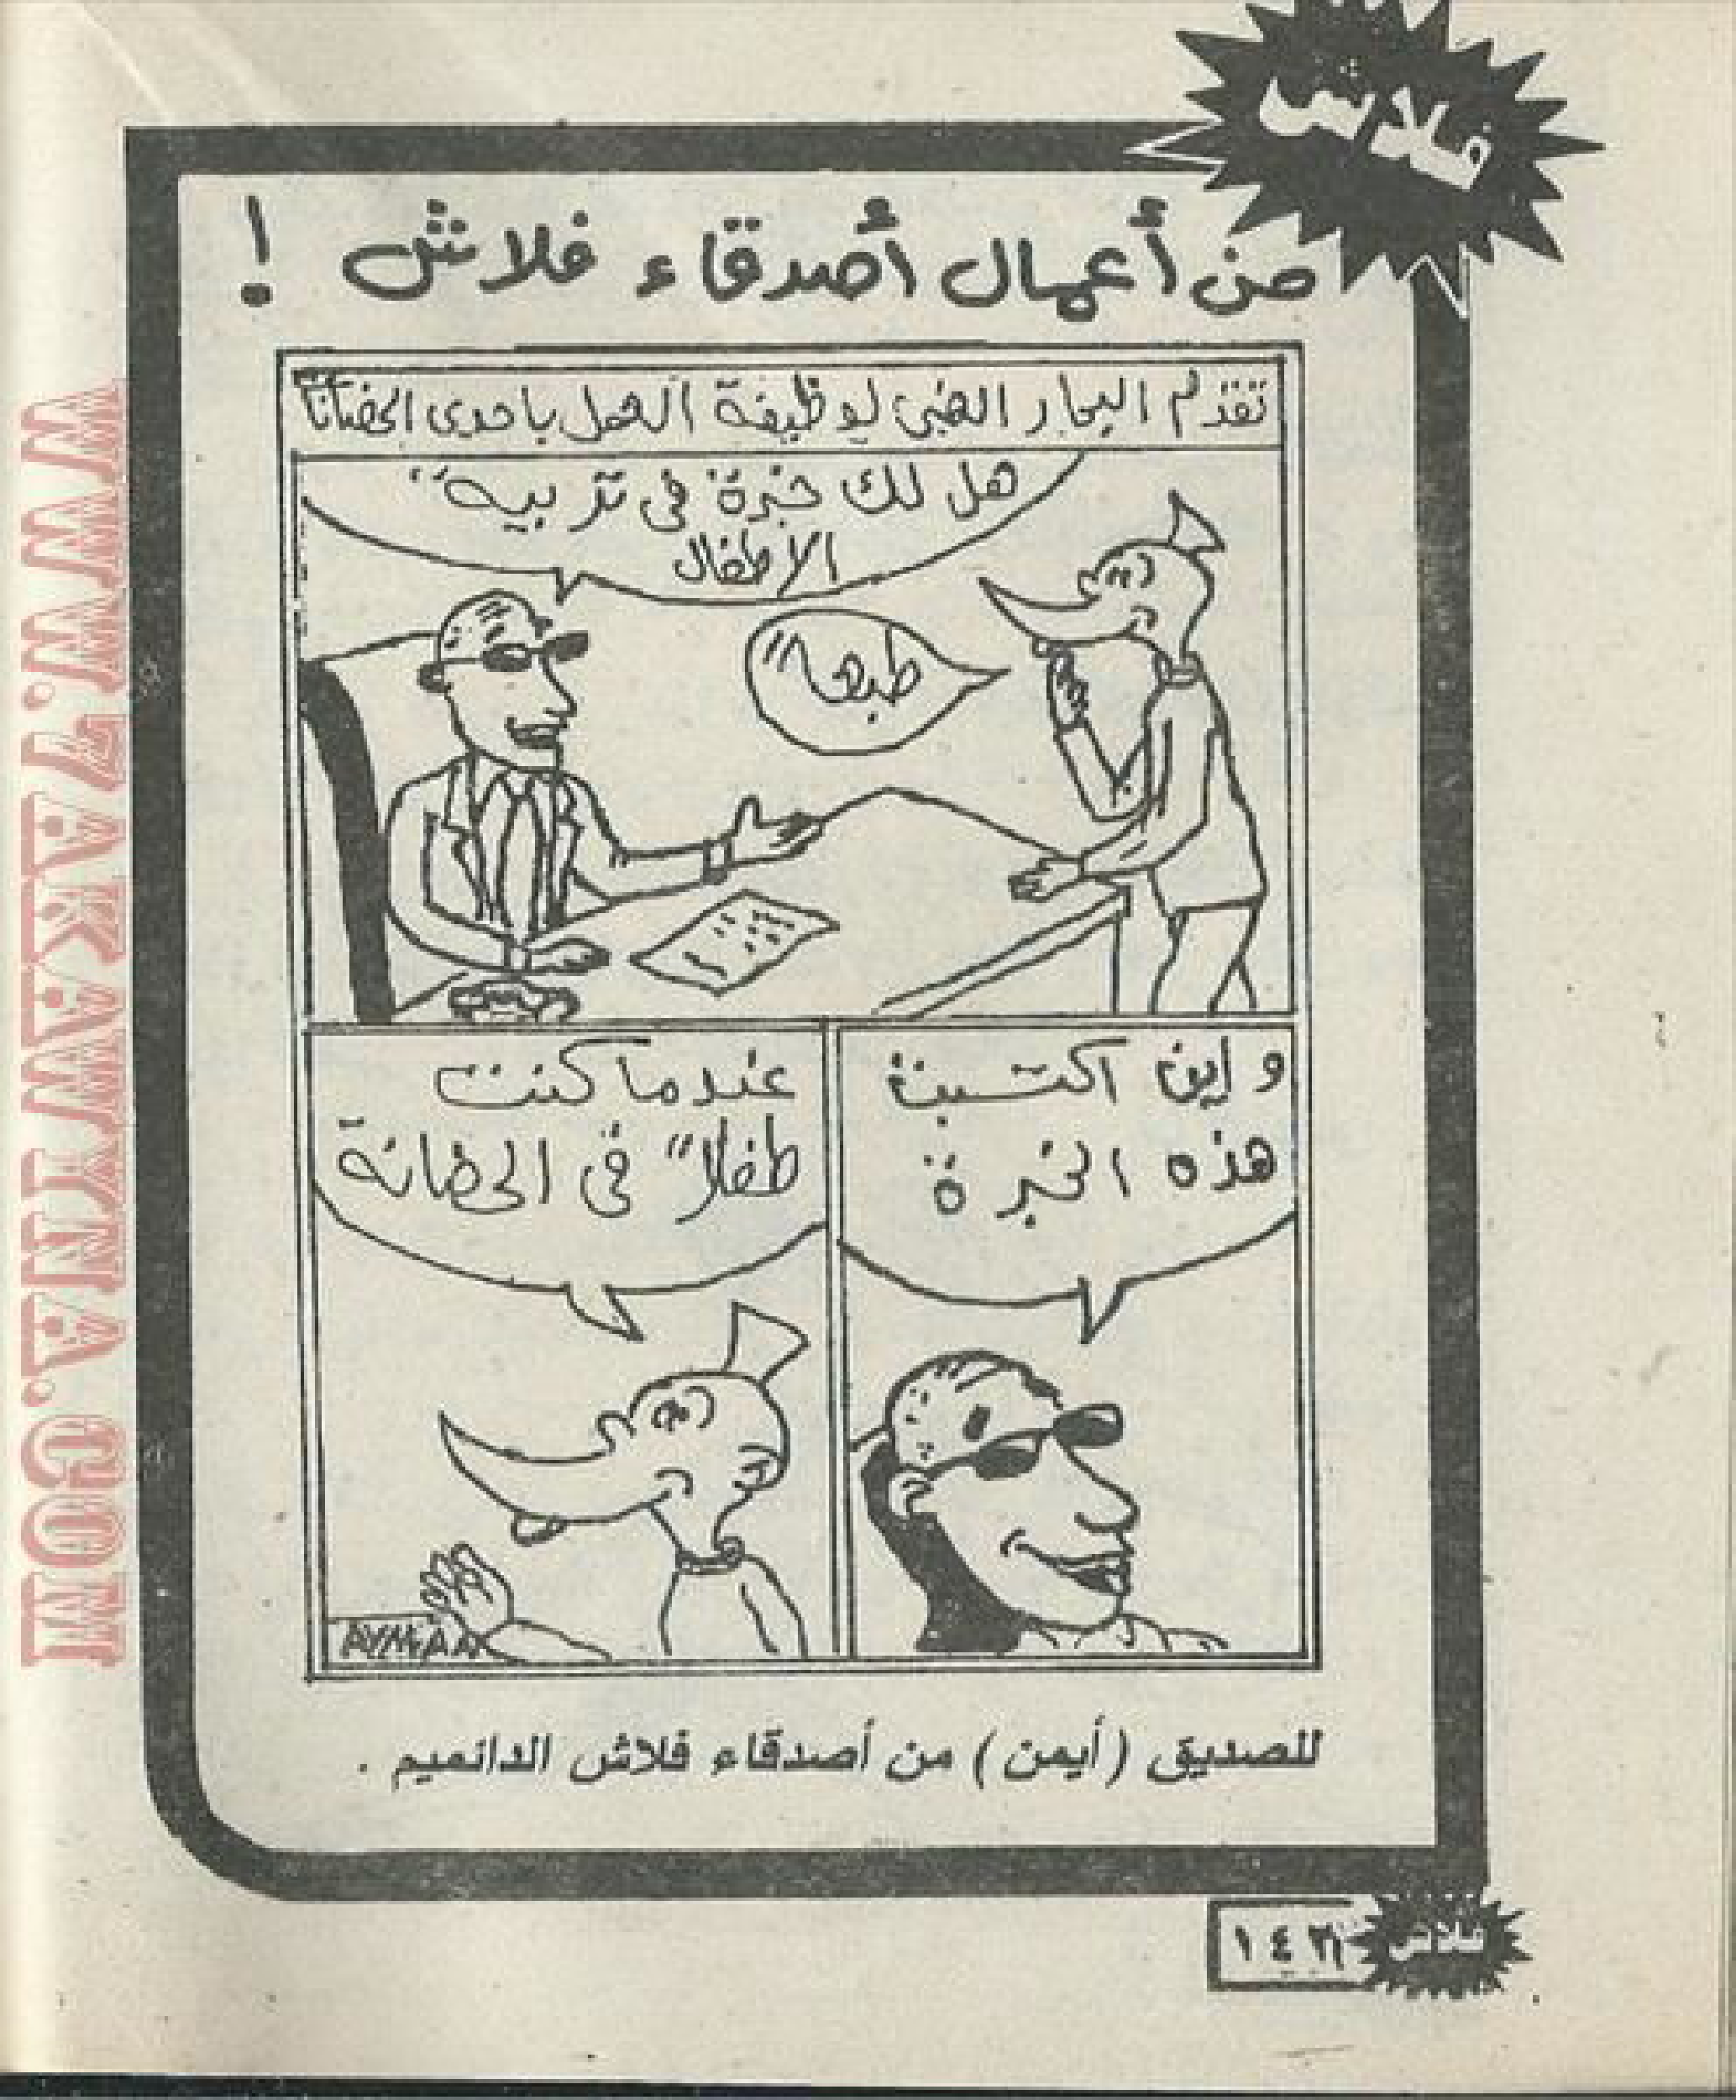 فلاش
من أعمال أصدقاء فلاش !
تقدم البحار الغبى لوظيفة العمل باحدى الحضانات
هل لك خبرة فى تربية
الاطفال
طبعا"
واين اكتسبت
هذه الخبرة
عندما كنت
طفلا" فى الحضانة
AYMAN
للصديق ( أيمن ) من أصدقاء فلاش الدائميم .
فلاش
WWW.7AKAWITNA.COM